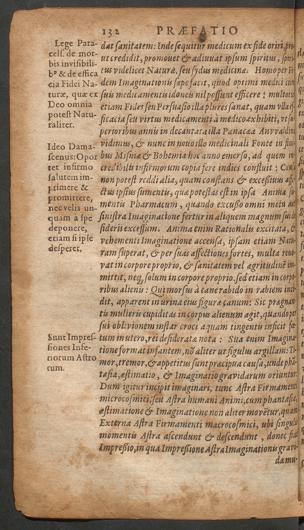 132 PRÆFATIO
Lege Para-
cels. de mor-
bis invisibili-
bꝰ & de effica
cia Fidei Na-
turæ, quæ ex
Deo omnia
potest Na-
turaliter.
Ideo Dama-
scenus: Opor
tet infirmo
salutem im-
primere &
promittere,
nec velit un-
quam a spe
deponere,
etiam si ipse
desperet.
Sunt Impres-
siones Infe-
riorum Astro
rum.
dat sanitatem: Inde sequitur medicum ex fide oriri, pro
ut credidit, promovet & adiuvat ipsum spiritus,
tus videlicet Naturæ, seu sydus medicinæ. Homo per Fi-
dem Imaginationis sæpe facit, quod optimi medici
sui medicamentis idoneis nil possunt efficere: multos
etiam Fides seu Persuasio illa plures sanat, quam
ficacia seu virtus medicamenti à medico exhibiti,
perioribus annis in decantata illa Panacæa
vidimus, & nunc in novissimo medicinali Fonte in
bus Misniæ & Bohemiæ hoc anno emerso, ad quem
credibilis infirmorum copia fere indies confluit:
non potest reddi alia, quam constans & excessivus
ctus ipsius sumentis, quæ potestas est in ipsa Anima
mentis Pharmacum, quando excusso omni metu
sinistra Imaginatione fertur in aliquem magnum sui de-
siderii excessum. Anima enim Rationalis excitata, &
vehementi Imaginatione accensa, ipsam etiam Natu-
ram superat, & per suas affectiones fortes, multa reno-
vat in corpore proprio, & sanitatem vel ægritudinem
mittit, neq; solum in corpore proprio, sed etiam in corpo-
ribus alienis: Qui morsus à cane rabido in rabiem inci-
dit, apparent in urina eius figuræ canum: Sic prægnan-
tis mulieris cupiditas in corpus alienum agit, quando
sui oblivionem instar croci aquam tingentis inficit fœ-
tum in utero, rei desideratæ nota: Sua enim Imagina-
tione format infantem, nō aliter ut figulus argillam: Ti-
mor, tremor, & appetitus sunt præcipua causa, unde
tasia, æstimatio, & Imaginatio gravidarum oriuntur
Dum igitur incipit imaginari, tunc Astra Firmamenti
microcosmici, seu Astra humani Animi, cum phantasia
æstimatione & Imaginatione non aliter movētur, quam
Externa Astra Firmamenti macrocosmici, ubi singulis
momentis Astra ascendunt & descendunt, donec fiat
Impressio, in qua Impressione Astra Imaginationis gravi-
da mu-